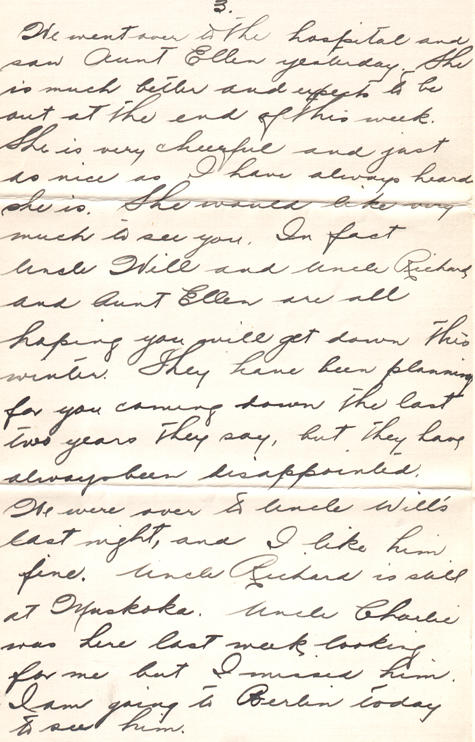 3.
We went over to the hospital and
saw Aunt Ellen yesterday. She
is much better and expects to be
out at the end of this week.
She is very cheerful and just
as nice as I have always heard
she is. She would like very
much to see you. In fact
Uncle Will and Uncle Richard
and Aunt Ellen are all
hoping you will get down this
winter. They have been planning
for you coming down the last
two years they say, but they have
always been disappointed.
We were over to Uncle Will's
last night, and I like him
fine. Uncle Richard is still
at Muskoka. Uncle Charlie
was here last week looking
for me but I missed him.
I am going to Berlin today
to see him.